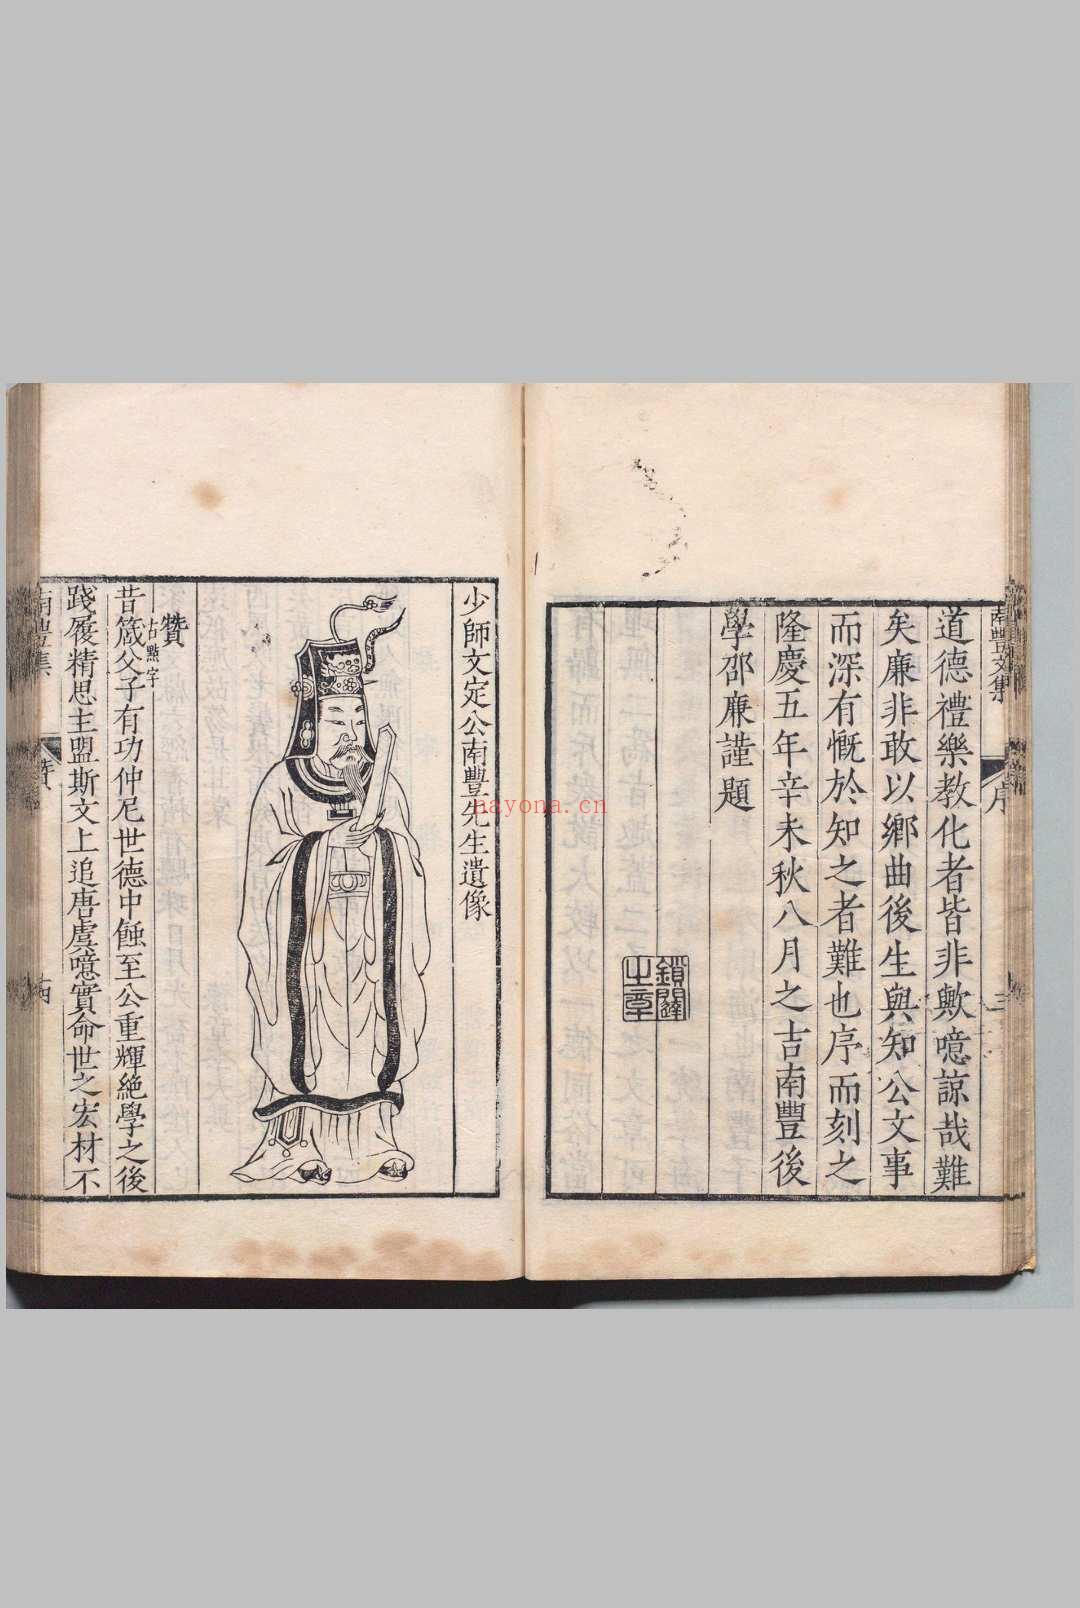 南豐文集
序
三
道德禮樂教化者皆非歟噫諒哉難
矣廉非敢以鄉曲後生與知公文事
而深有慨於知之者難也序而刻之
隆慶五年辛未秋八月之吉南豐後
學邵廉謹題
鎖闥
之章
少師文定公南豐先生遺像
贊
古點字
昔箴父子有功仲尼世德中蝕至公重輝絕學之後
踐履精思主盟斯文上追唐虞噫實命世之宏材不
南豐集
贊
nayona.cn